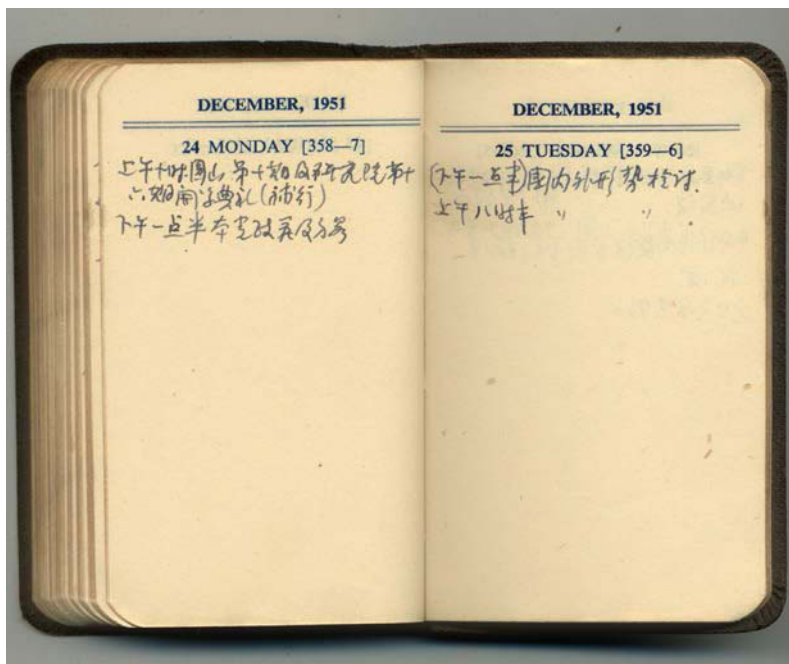 DECEMBER, 1951
24 MONDAY [358—7]
上午十时圆山第十期及研究院第十
六期开学典礼(补行)
下午一点半本党政策及
DECEMBER, 1951
25 TUESDAY [359—6]
(下午一点半)国内外形势检讨.
上午八时半 〃 〃